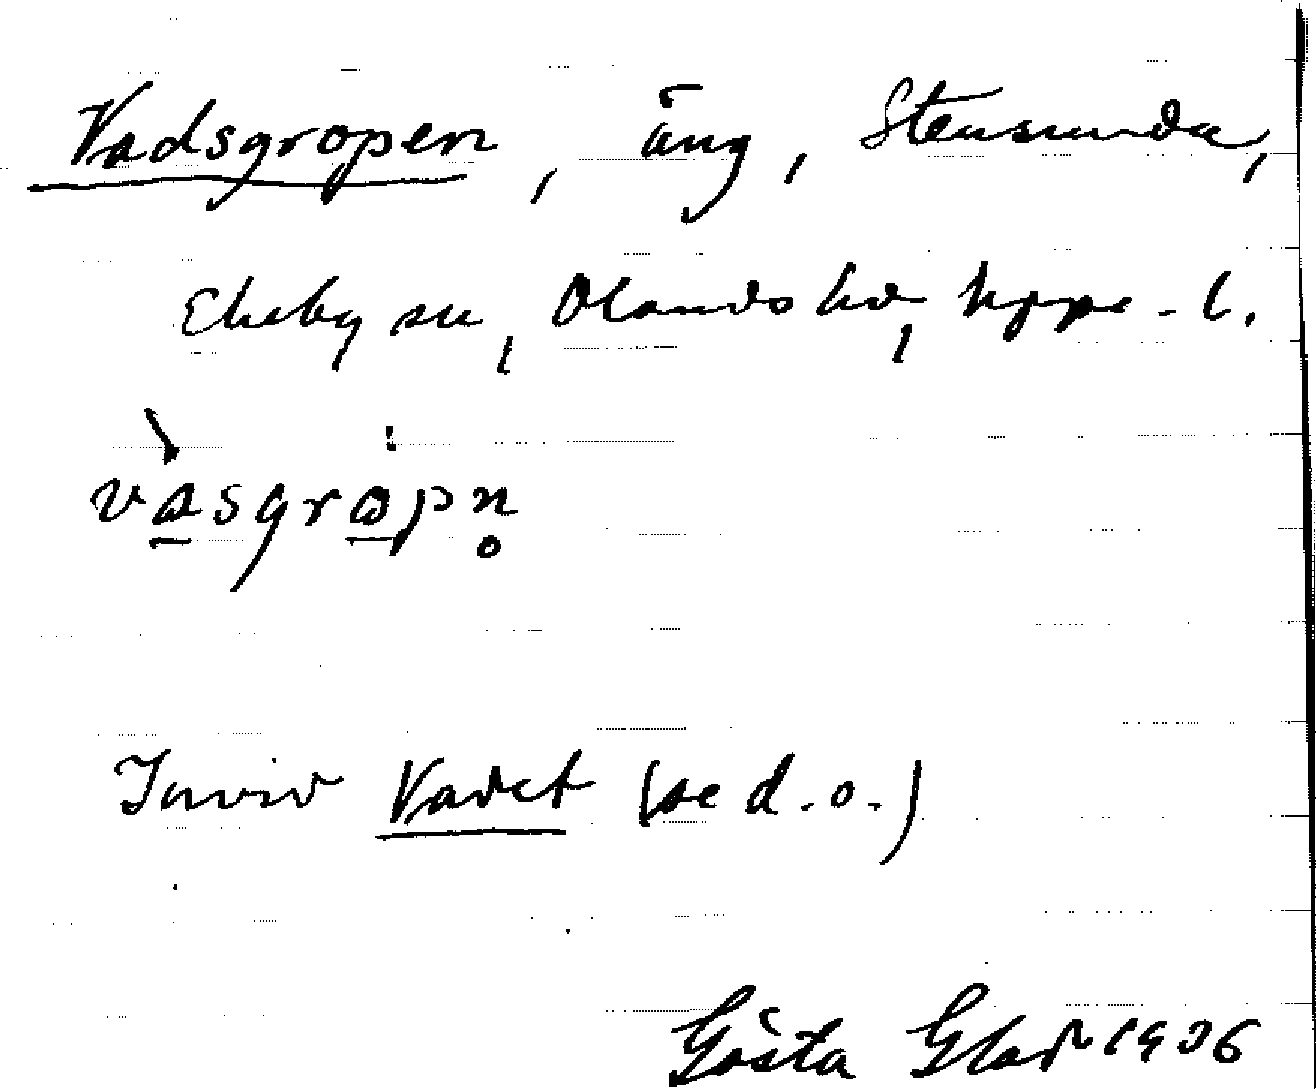 Vadsgropen, äng, Stensunda,
Ekeby sn, Olands hd, Upps. l.
vàsgrɷpn̥
Invid Vadet (se d.o.)
Gösta 1936